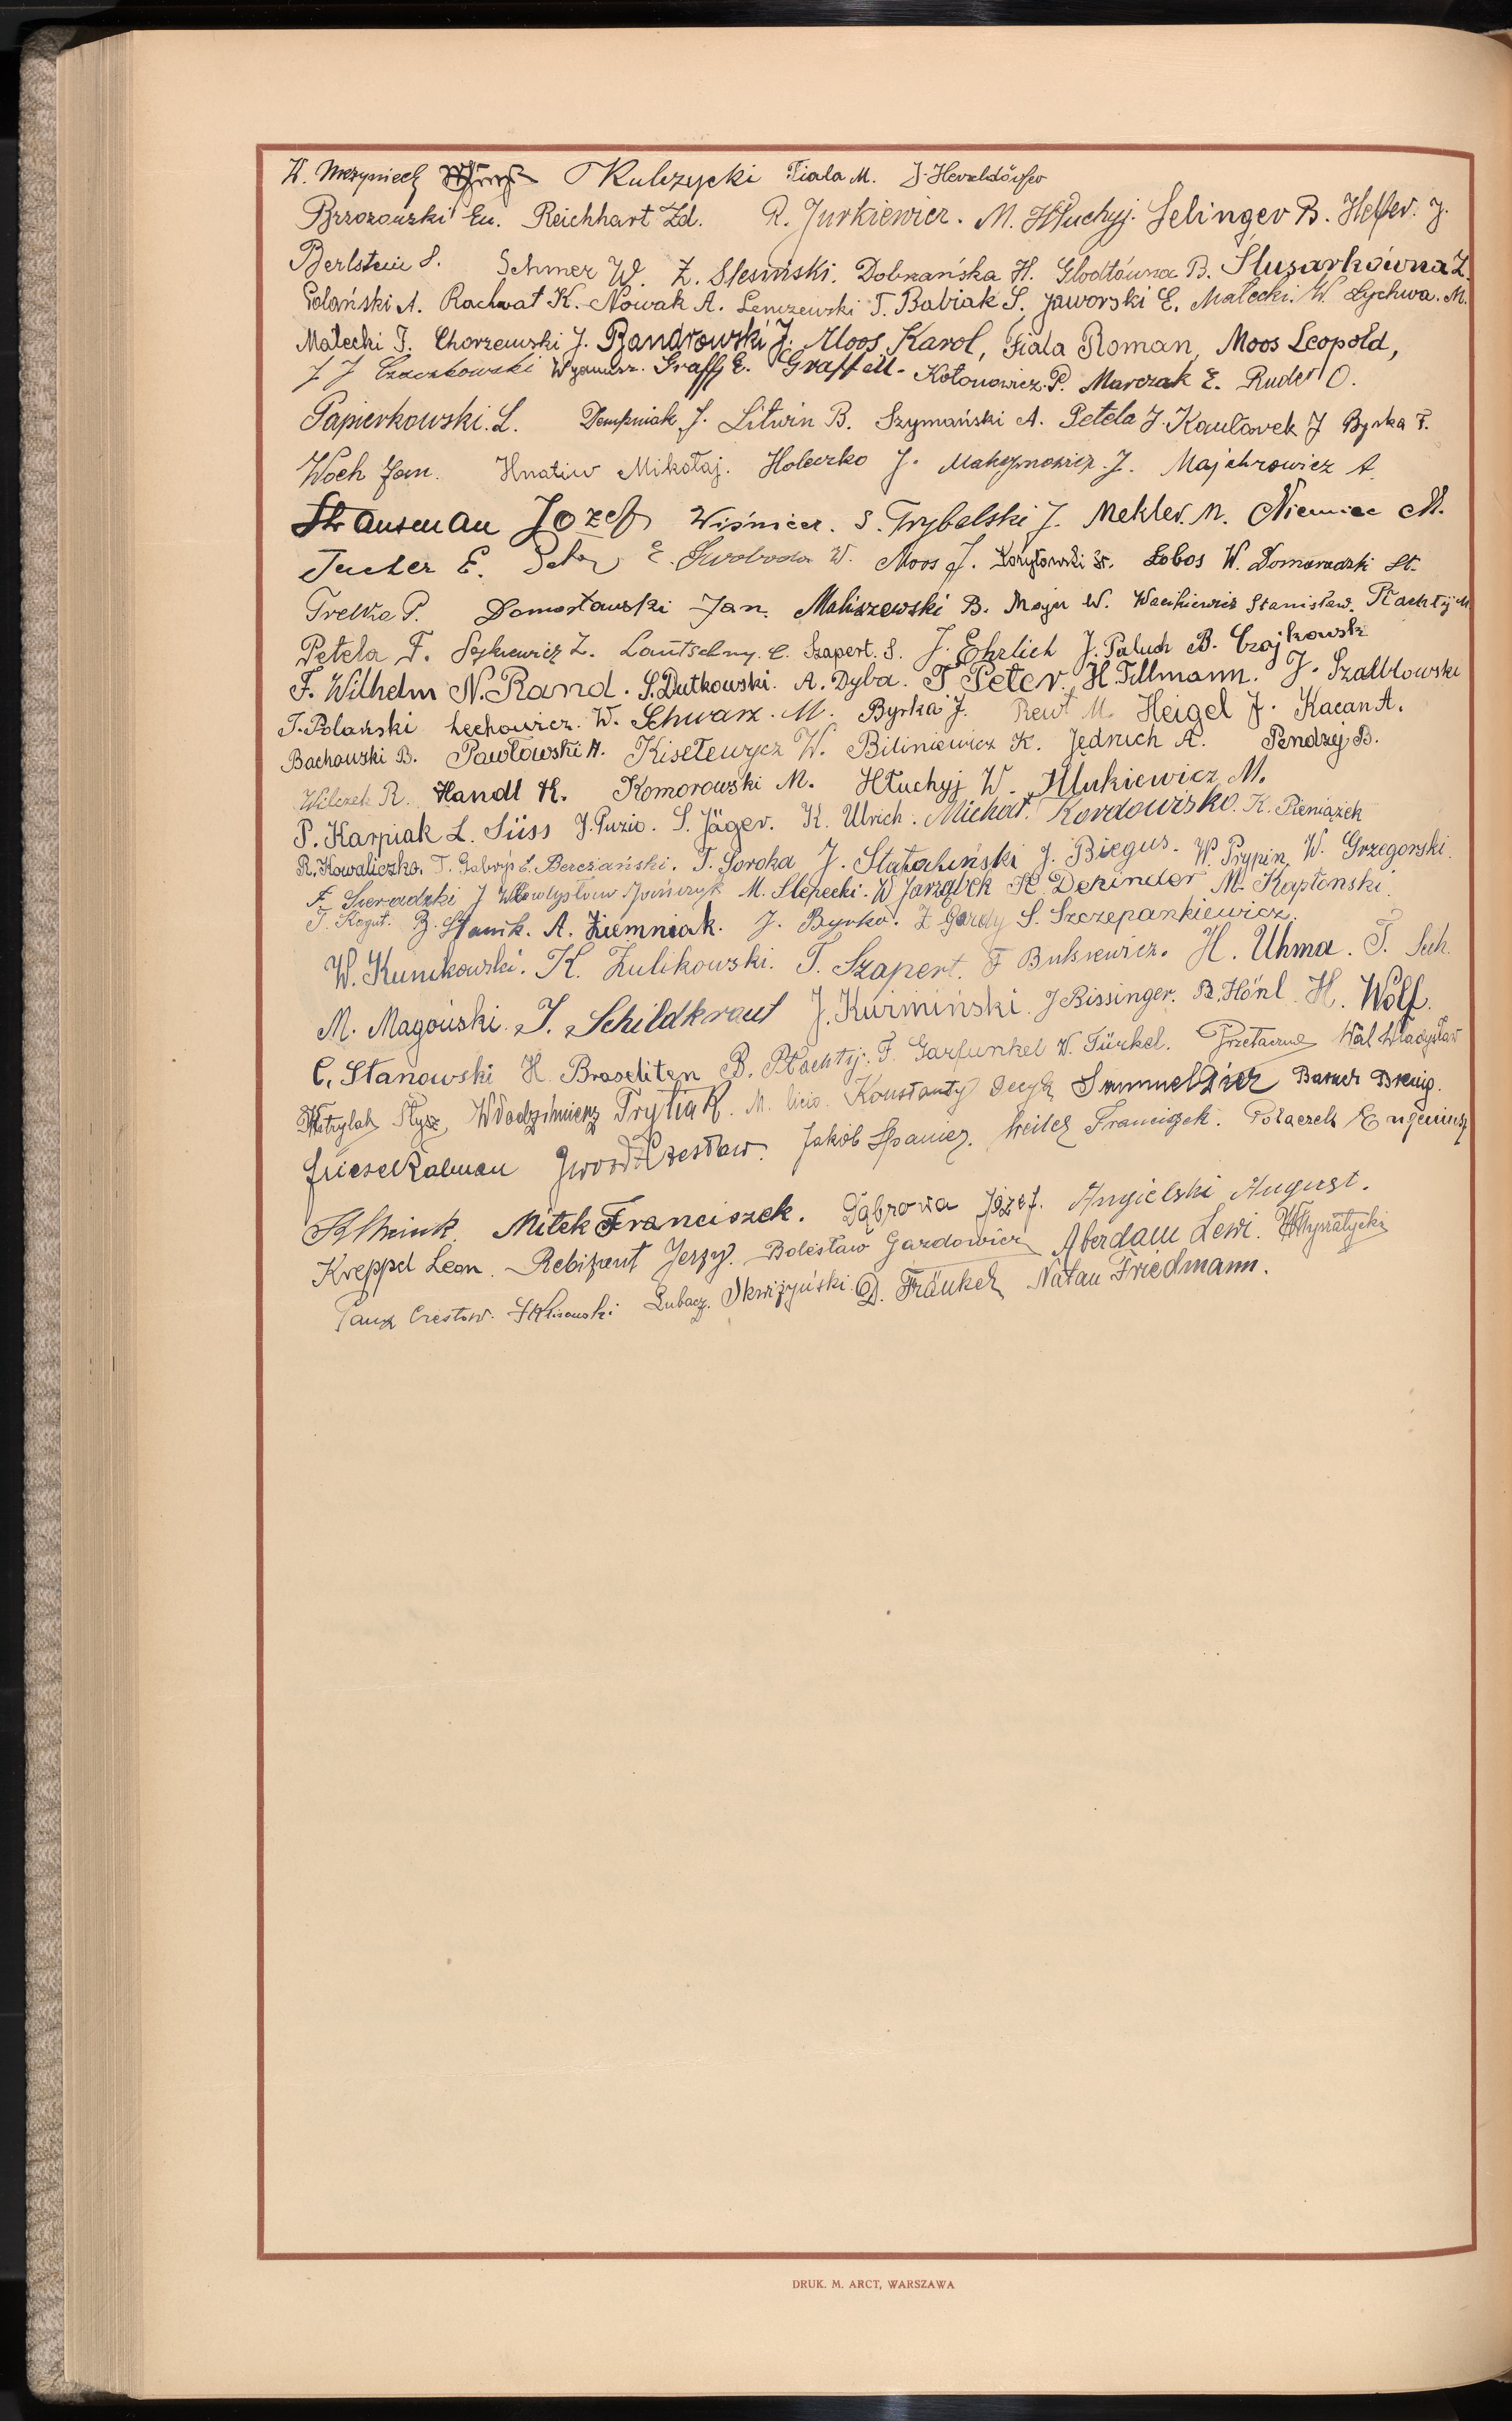 Kulczycki Fiala M.
Brzozowski Eu. Reichhart Zd. R. Jurkiewicz. M. Hłuchyj. Selinger B. Helfer. J.
Berlstein S. Schmer W. Z. Slesiński. Dobrzańska H. Głodtówna B. Ślusarkówna Z.
Polański A. Rachwat K. Nowak A. Lenczewski T. Babiak S. Jaworski E. Małecki. W. Łychwa. M.
Małecki J. Chorzewski J. Bandrowski J. Moos Karol, Fiala Roman, Moos Leopold,
J J Czaczkowski Graff E. Graff M. Kołonowicz. P. Marczak E. Ruder O.
Papierkowski. L. Dempniak J. Litwin B. Szymański A. Petela J. Kautarek J Byrka F.
Woch Jan. Hnatiw Mikołaj. Holeczko J. Maksymowicz J. Majchrowicz A.
Strausman Jozef Wiśnicer. S. Trybalski J. Mekler. M. Niemiec M.
Tucher E. E. Swoboda W. Moos J. Łobos W. Domaradzki St.
Trelka P. Domosławski Jan. Maliszewski B. Major W. Wacikiewicz Stanisław. Płachtyj M.
Petela F. Sękiewicz Z. Szapert. S. J. Ehrlich J. Paluch B. Czajkowski
F. Wilhelm N. Rand. S. Dutkowski. A. Dyba. T. Peter. H. Tillmann. J. Szalbłowski
T. Polański Lechowicz. W. Schwarz. M. Byrka J. Rewt M. Heigel J. Kacan A.
Bachowski B. Pawłowski A. Kisełewycz W. Biliniewicz K. Jędruch A. Pendzej B.
Wilczek R. Handl H. Komorowski M. Hłuchyj W. Ilukiewicz M.
P. Karpiak L. Süss J. Puzio. S. Jäger. K. Ulrich. Michał. Kordowisko. K. Pieniążek
R. Kowaliczko. T. Gabryś E. Berezański. T. Soroka J. Statahiński J. Biegus. W. Prypin, W. Grzegorski.
F. Sieradzki J Władysław M. Slepecki. W Jarząbek H. Dekinder M. Kapłonski.
T. Kogut. B. Stanik. A. Ziemniak. J. Byrko. Z Gardy S. Szczepankiewicz.
W. Kunikowski. K. Zulikowski. T. Szapert. F. H. Uhma. T. Sech.
M. Magoński. J. Schildkraut J. Kurmiński. J Bissinger. B. Hönl. H. Wolf.
C. Stanowski H. Braseliten B. Płachtyj. F. Garfunkel W. Türkel. Przetacznik Wal Władysław
Stysz, Włodzimierz Trytiak. M. Konstanty Decyk Samuel Baruch Brenig.
Friesel Kalman Gwozd Czesław. Jakób Spanier. Weiler Franciszek. Połaczek Eugeniusz
Mitek Franciszek. Dąbrowa Józef. Angielski August.
Kreppel Leon. Rebizant Jerzy. Bolesław Gazdowicz Aberdam Lewi.
Lubacz. Skwirzyński. D. Fränkel Natan Friedmann.
DRUK. M. ARCT, WARSZAWA